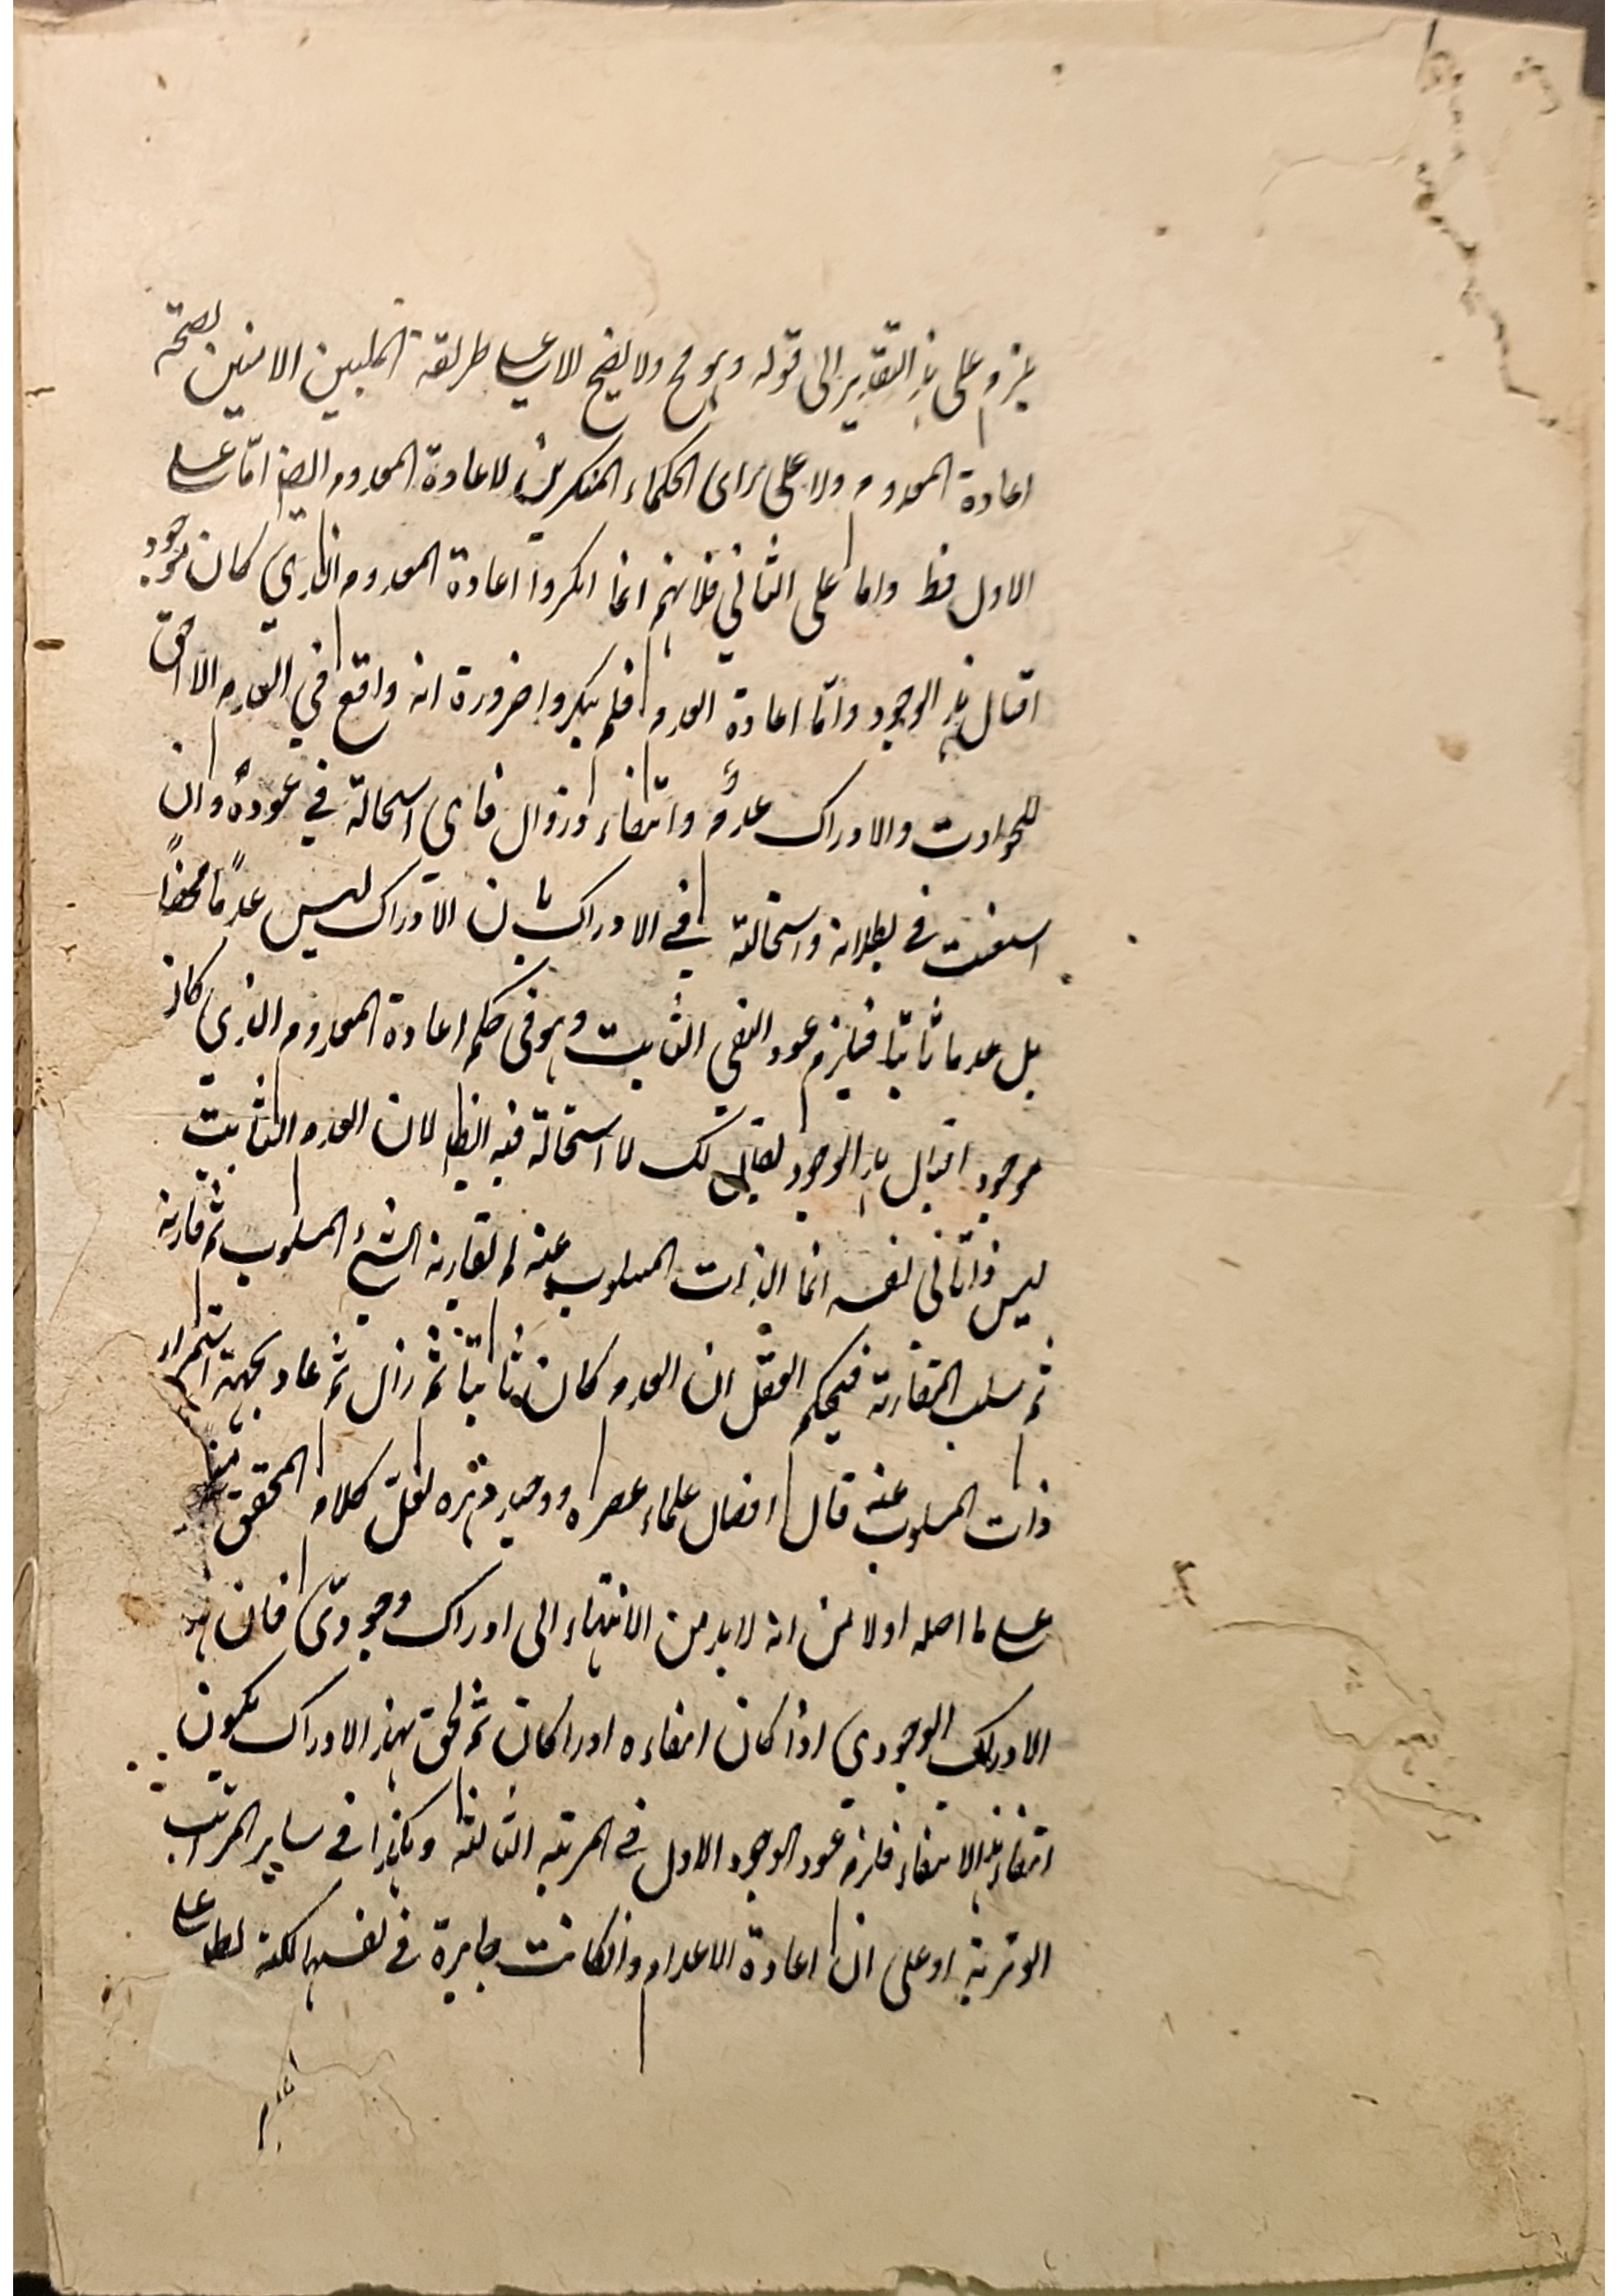 يلزم على هذا التقدير الى قوله وهو مح ولا يصح لا على طريقة المليين الامنين لصحة
اعادة المعدوم ولا على راى الحكماء المنكرين لاعادة المعدوم ايضا امّا على
الاول فظ واما على الثاني فلانهم انما انكروا اعادة المعدوم الذي كان موجود
اقبال هذا الوجود وامّا اعادة العدم فلم ينكروا ضرورة انه واقع في العدم اللاحق
للحوادث والادراك عدمٌ وانتفاء وزوال فاى استحالة في عوده وان
استعنت في بطلانه واستحالته في الادراك بان الادراك ليس عدمًا محضًا
بل عدما ثابتا فيلزم عود النفى الثابت وهو فى حكم اعادة المعدوم الذي كان
موجود اقبال هذا الوجود يقال لك لا استحالة فيه ايضا لان العدم الثابت
ليس ذاتا فى نفسه انما الذات المسلوب عنه لم تقارنه الشئ المسلوب ثم قارنه
ثم سلب المقارنة فيحكم العقل ان العدم كان ثابتا ثم زال ثم عاد بجهة استمرار
ذات المسلوب عنه قال افضل علماء عصره ووحيد دهره لعلّ كلام المحقق مبنى
على ما اصله اولا من انه لا بد من الانتهاء الى ادراك وجودىّ فان هذا
الادراك الوجودي اذا كان انتفاءه ادراكان ثم لحق بهذا الادراك يكون
انتفاء هذا الانتفاء فلزم عود الوجود الاول في المرتبه الثالثه وهكذا في ساير المراتب
الوترية او على ان اعادة الاعدام وانكانت جايزة في نفسها لكنه بط على